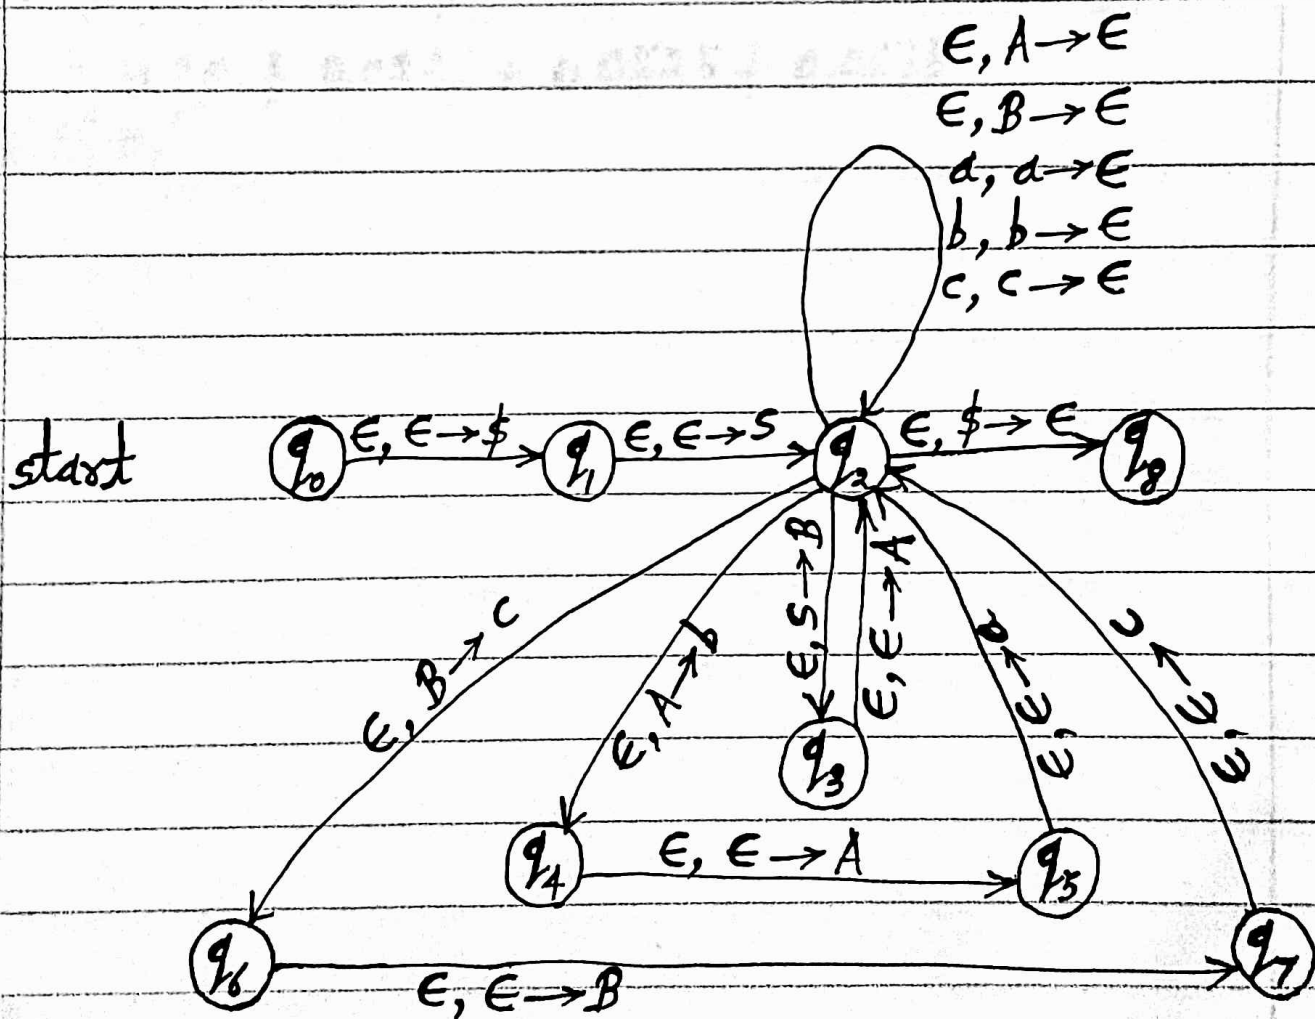 ϵ, A → ϵ
ϵ, B → ϵ
a, a → ϵ
b, b → ϵ
c, c → ϵ
start
q0
ϵ, ϵ → $
q1
ϵ, ϵ → S
q2
ϵ, $ → ϵ
q8
ϵ, B → c
ϵ, A → b
ϵ, S → B
ϵ, ϵ → A
ϵ, ϵ → a
ϵ, ϵ → c
q3
q4
ϵ, ϵ → A
q5
q6
ϵ, ϵ → B
q7